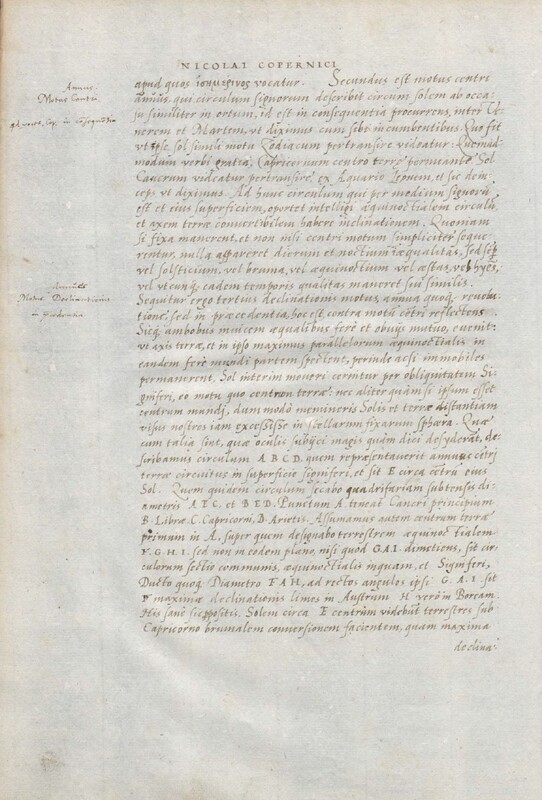 NICOLAI COPERNICI
Annuus
Motus Centri
in consequentia
apud quos ἰσημερινος vocatur. Secundus est motus centri
annuus, qui circulum signorum describit circum solem ab occa-
su similiter in ortum, id est in consequentia procurrens, inter Ve-
nerem et Martem, vt diximus cum sibi incumbentibus. Quo fit
vt ipse sol simili motu Zodiacum pertransire videatur: Quemad-
modum verbi gratia, Capricornum centro terræ permeante, Sol
Cancrum videatur pertransire ex Aquario Leonem, et sic dein-
ceps vt diximus. Ad hunc circulum qui per medium signorū
est et eius superficiem, oportet intelligi æquinoctialem circulū,
et axem terræ convertibilem habere inclinationem. Quoniam
si fixa manerent, et non nisi centri motum simpliciter seque-
rentur, nulla appareret dierum et noctium inæqualitas, sed semp
vel solsticium, vel bruma, vel æquinoctium vel æstas, vel hyēs,
vel vtcunq; eadem temporis qualitas maneret sui similis.
Annuus
Motus Declinationis
in præcedentia
Sequitur ergo tertius declinationis motus, annua quoq; revolu-
tione: sed in præcedentia, hoc est contra motū cētri reflectens.
Sicq; ambobus invicem æqualibus fere et obvijs mutuo, evenit:
vt axis terræ, et in ipso maximus parallelorum æquinoctialis in
eandem fere mundi partem spectent, perinde acsi immobiles
permanerent. Sol interim moveri cernitur per obliquitatem Si-
gniferi, eo motu quo centrum terræ: nec aliter quam si ipsum esset
centrum mundi, dum modò memineris Solis et terræ distantiam
visus nostros iam excessisse in stellarum fixarum sphæra. Quæ
cum talia sint, quæ oculis subijci magis quàm dici desyderāt, de-
scribamus circulum A B C D, quem repræsentaverit annuus cētri
terræ circuitus in superficie signiferi, et sit E circa cētrū eius
Sol. Quem quidem circulum secabo quadrifariam subtensis di-
ametris A E C, et B E D. Punctum A teneat Cancri principium
B. Libræ, C. Capricorni, D. Arietis. Assumamus autem centrum terræ
primum in A, super quem designabo terrestrem æquinoctialem
F. G. H. I. sed non in eodem plano, nisi quod G.A.I. dimetiens, sit cir-
culorum sectio communis, æquinoctialis inquam, et Signiferi,
Ducto quoq; Diametro F A H, ad rectos angulos ipsi G. A. I. sit
F maximæ declinationis limes in Austrum H verò in Boream.
His sanè sic positis, Solem circa E centrum videbūt terrestres sub
Capricorno brumalem conversionem facientem, quam maxima
declina-